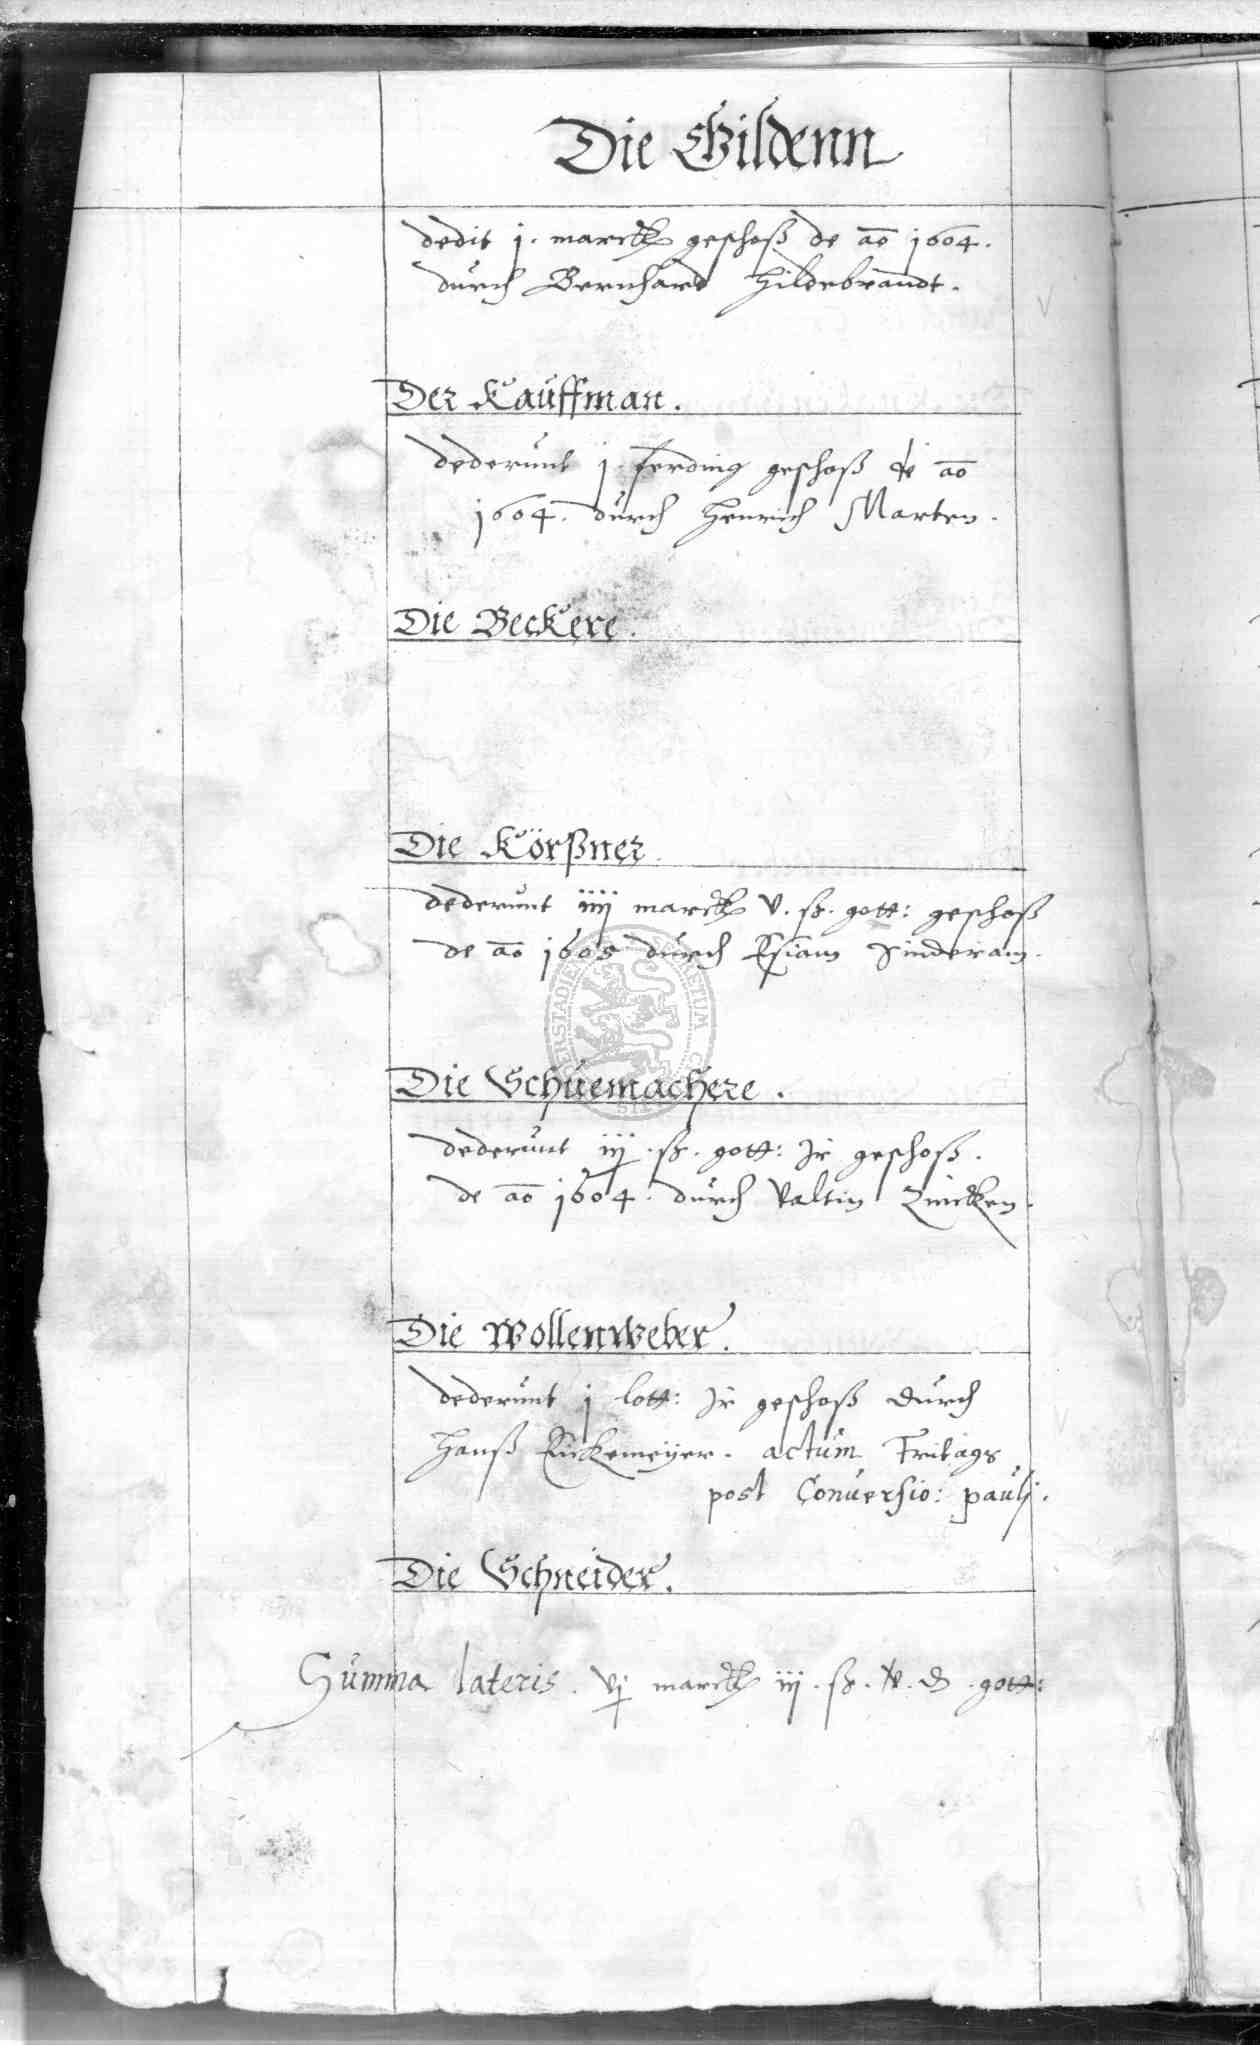 Die Gildenn
dedit j. marck geschoß de ao 1604.
durch Bernhard Hildebrandt.
Der Kauffman.
dederunt j. ferding geschoß de ao
1604. durch Henrich Marten.
Die Beckere.
Die Körßner
dederunt iiij marck v. ß. gott: geschoß
de ao 1605 durch Esiam
Die Schuemachere.
dederunt iij. ß. gott: Ir geschoß.
de ao 1604. durch Valtin Zincken.
Die Wollenweber.
dederunt j lott: Ir geschoß durch
Hanß actum Fritags
post Conuersio: pauli.
Die Schneider.
Summa lateris. vj marck iij. ß. gott: